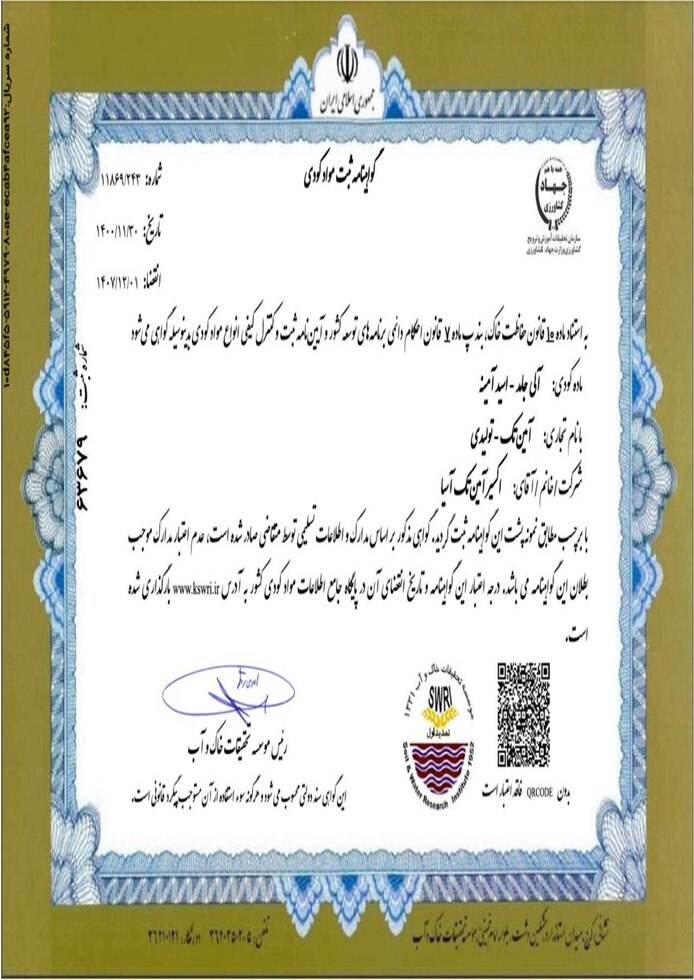 جمهوری اسلامی ایران
گواهینامه ثبت مواد کودی
شماره: ۱۱۸۶۹/۲۴۳
تاریخ: ۱۴۰۰/۱۱/۳۰
انقضاء: ۱۴۰۷/۱۲/۰۱
همه با هم
جهاد
کشاورزی
سازمان تحقیقات، آموزش و ترویج
کشاورزی وزارت جهاد کشاورزی
به استناد ماده ۱۵ قانون حفاظت خاک، بند پ ماده ۷ قانون احکام دائمی برنامه های توسعه کشور و آیین نامه ثبت و کنترل کیفی انواع مواد کودی بدینوسیله گواهی می شود
ماده کودی: آلی جامد - اسید آمینه
با نام تجاری: آمین تک - تولیدی
شرکت/خانم/آقای: اکسیر آمین تک آسیا
با برچسب مطابق نمونه پشت این گواهینامه ثبت گردید. گواهی مذکور بر اساس مدارک و اطلاعات تسلیمی توسط متقاضی صادر شده است، عدم اعتبار مدارک موجب
بطلان این گواهینامه می باشد. درجه اعتبار این گواهینامه و تاریخ انقضای آن در پایگاه جامع اطلاعات مواد کودی کشور به آدرس www.kswri.ir بارگذاری شده
است.
شماره ثبت: ۶۳۶۷۹
رئیس موسسه تحقیقات خاک و آب
موسسه تحقیقات خاک و آب ۱۳۳۱
SWRI
تمدید اول
Soil & Water Research Institute 1952
بدون QRCODE فاقد اعتبار است
این گواهی سند دولتی محسوب می شود و هرگونه سوء استفاده از آن مستوجب پیگرد قانونی است.
نشانی: کرج، میدان استاندارد، مشکین دشت، بلوار امام خمینی، موسسه تحقیقات خاک و آب
تلفن: ۵-۳۶۲۰۳۵۲۰ دورنگار: ۳۶۲۱۰۱۲۱